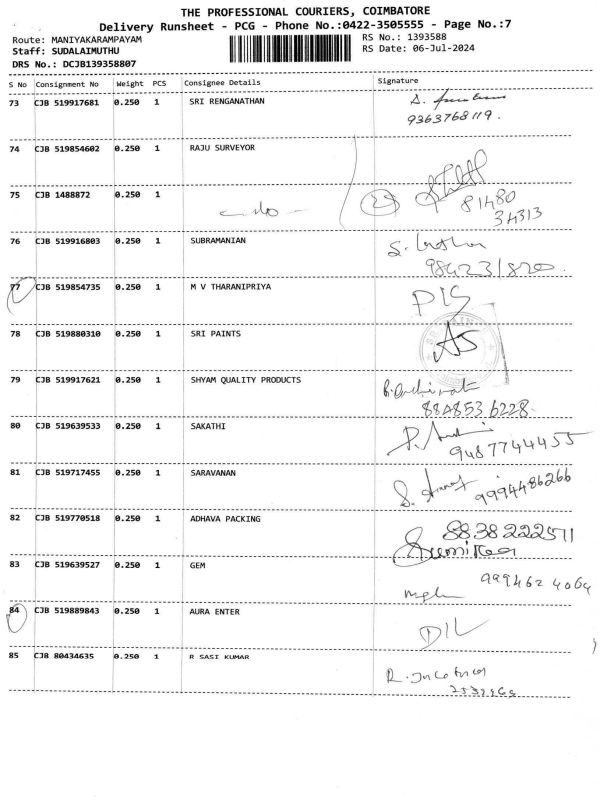 THE PROFESSIONAL COURIERS, COIMBATORE
Delivery Runsheet - PCG - Phone No.:0422-3505555 - Page No.:7
Route: MANIYAKARAMPAYAM RS No.: 1393588
Staff: SUDALAIMUTHU RS Date: 06-Jul-2024
DRS No.: DCJB139358807
S No Consignment No Weight PCS Consignee Details Signature
73 CJB 519917681 0.250 1 SRI RENGANATHAN
9363768119.
74 CJB 519854602 0.250 1 RAJU SURVEYOR
75 CJB 1488872 0.250 1
81480
34313
76 CJB 519916803 0.250 1 SUBRAMANIAN
984231820.
77 CJB 519854735 0.250 1 M V THARANIPRIYA
D/S
78 CJB 519880310 0.250 1 SRI PAINTS
AS
79 CJB 519917621 0.250 1 SHYAM QUALITY PRODUCTS
8848536228.
80 CJB 519639533 0.250 1 SAKATHI
9487744455
81 CJB 519717455 0.250 1 SARAVANAN
9994486266
82 CJB 519770518 0.250 1 ADHAVA PACKING
8838222571
83 CJB 519639527 0.250 1 GEM
9994624064
84 CJB 519889843 0.250 1 AURA ENTER
D/L
85 CJB 80434635 0.250 1 R SASI KUMAR